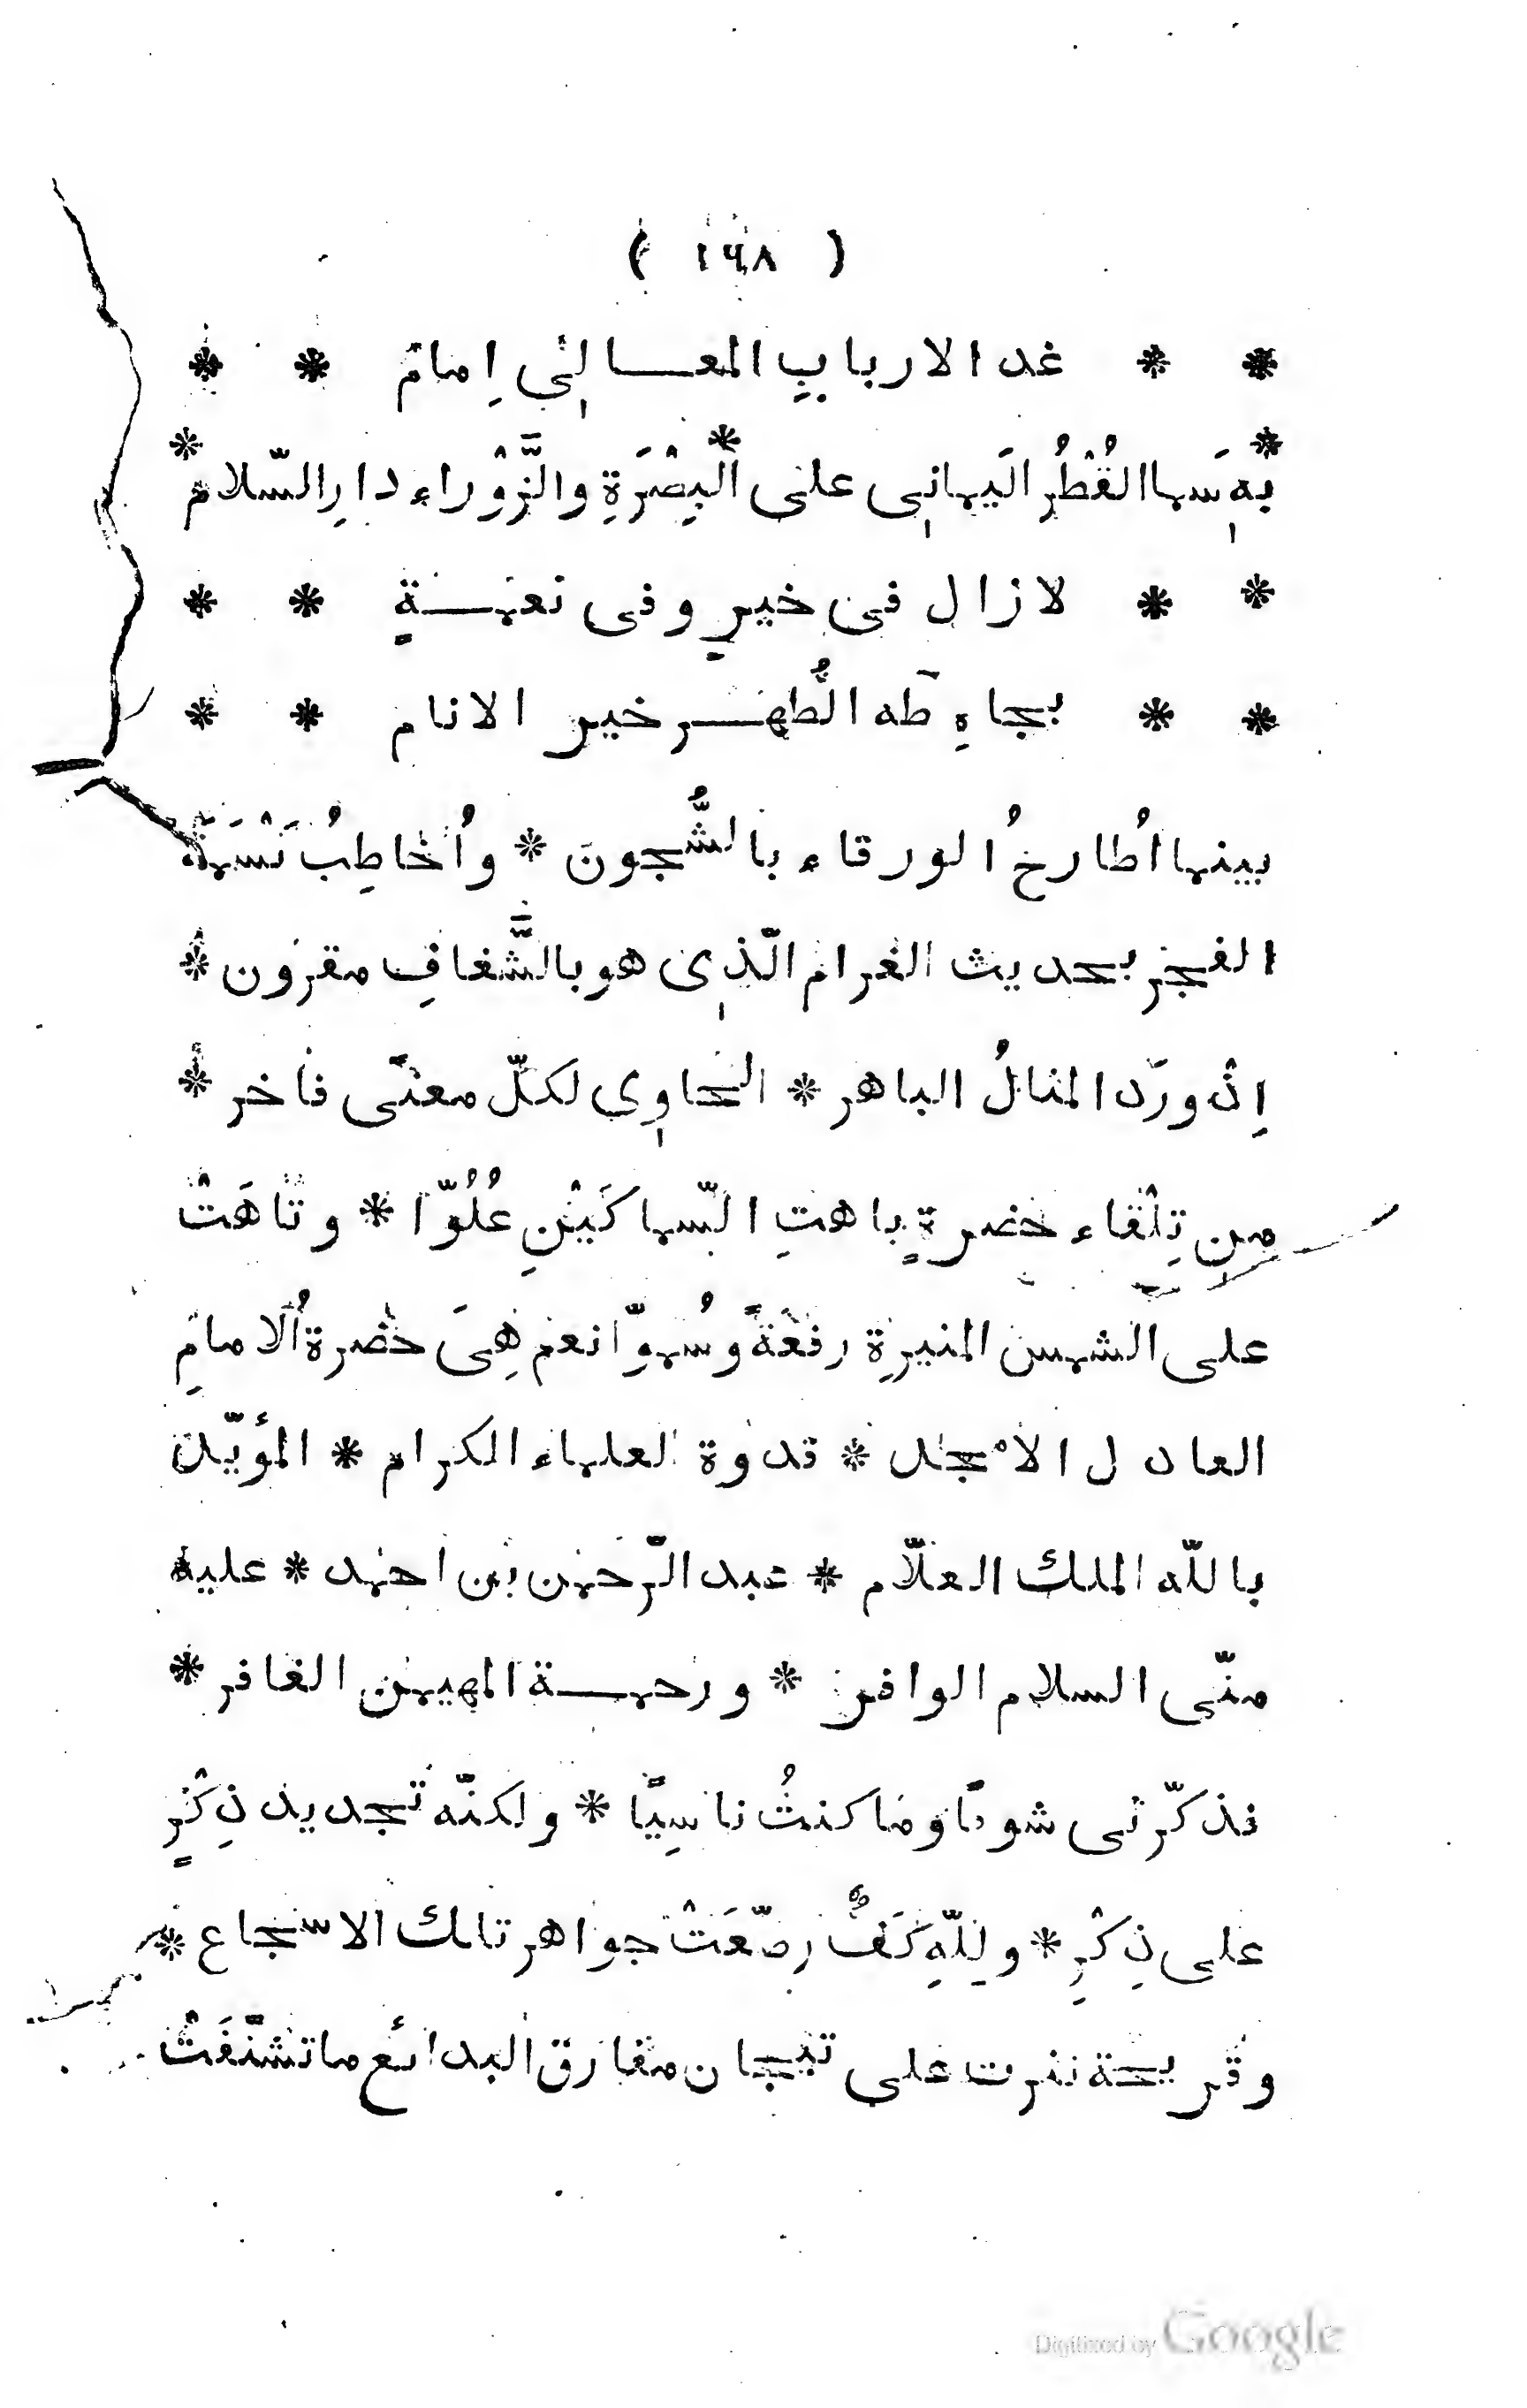 ( ١٦٨ )
* * غدا لارباب المعالى اِمام * *
* بهٖ سَما القُطْرُ اليَمانى على * البِصْرَةِ والزَّوْراء دارِ السّلام *
* * لا زال فى خيرٍ وفى نعمةٍ * *
* * بجاهِ طٰه الطُّهر خير الانام * *
بينما اُطارحُ الورقاء بالشُّجون * واُخاطِبُ نَسْمَةَ
الفجر بحديث الغرام الّذى هو بالشَّغافِ مقرون *
اِذ ورد المثالُ الباهر * الحاوى لكلّ معنًى فاخر *
من تِلْقاء حضرةٍ باهتِ السّماكَيْنِ عُلُوّا * وتاهَتْ
على الشمس المنيرةِ رفعةً وسُموّا نعم هِىَ حضرةُ الامامِ
العادل الامْجد * قدوة العلماء الكرام * المؤيّد
بالله الملك العلّام * عبد الرّحمن بن احمد * عليه
منّى السلام الوافر * ورحمة المهيمن الغافر *
فذكّرنى شوقًا وما كنتُ ناسِيًا * ولكنّه تجديد ذِكْرٍ
على ذِكْرِ * ولِلّهِ كَفٌّ رصّعَتْ جواهر تلك الاسجاع *
وقريحة نثرت على تيجان مفارق البدائع ما تشنّفَتْ
Digitized by Google